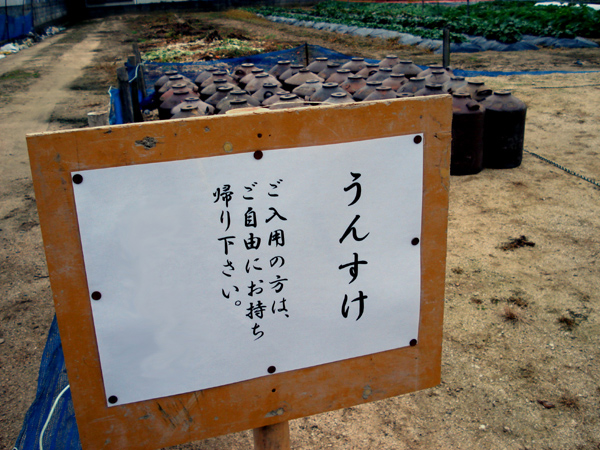 うんすけ
ご入用の方は、
ご自由にお持ち
帰り下さい。